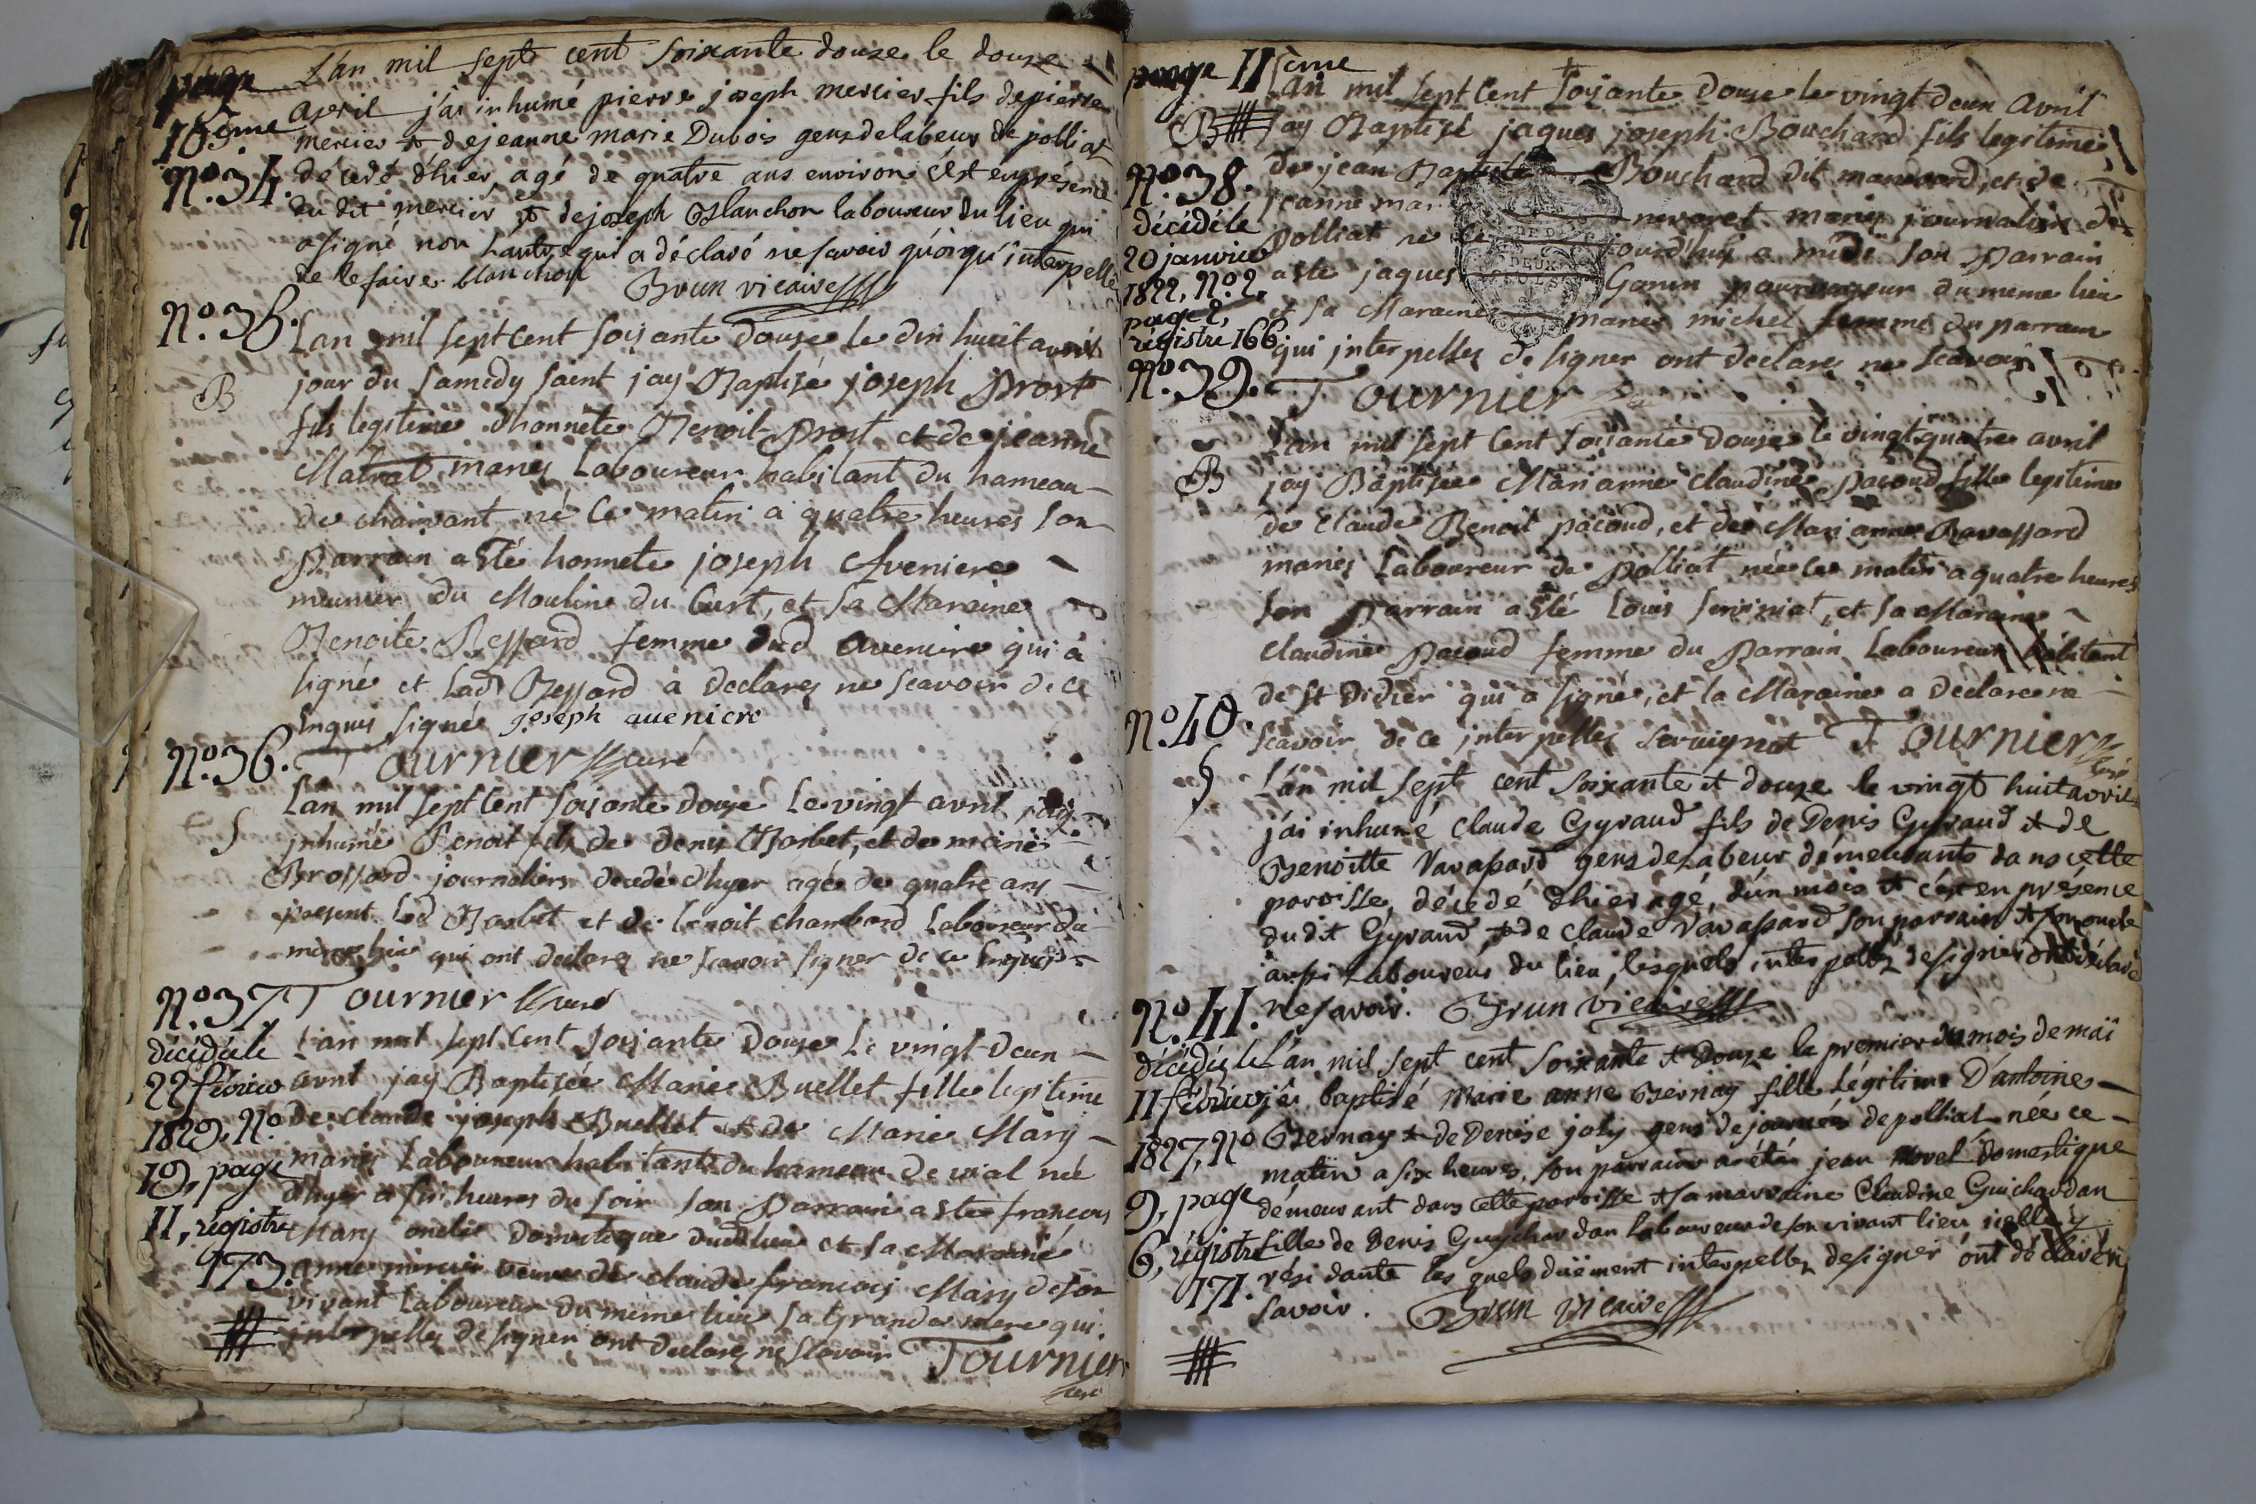 page
10ème
L'an mil sept cent soixante douze le douze
avril j'ai inhumé pierre joseph mercier fils de pierre
mercier et de jeanne marie Dubois gens de labeur de polliat
N.º 34.
décédé d'hier, agé de quatre ans environ c'est en présence
du dit mercier et de joseph Blanchon laboureur du lieu qui
a signé non l'autre qui a déclaré ne savoir quoiqu'interpellé
de le faire. blanchon Brun vicaire
N.º 35.
B
Lan mil sept cent soisante douse le dix huit avril
jour du samedy saint jay Baptisé joseph Prost
fils legitime d'honnete Benoit Prost et de jeanne
Matrat mariés Laboureur habitant du hameau
de chaivant né ce matin a quatre heures son
Parrain a sté honnete joseph Aveniere
meunier du Moulin du Curt, et sa Maraine
Benoite Bessard femme dud aveniere qui à
signé et lad Bessard à declaré ne scavoir de ce
Enquis signée joseph aueniere
Tournier curé
N.º 36.
S
Lan mil sept cent soisante douse Le vingt avril jay
inhumé Benoit fils de denis Barbet, et de marie
Brossard journaliers decedé d'hyer agée de quatre ans
present led Barbet et de benoit chambard Laboureur du
meme lieu qui ont declaré ne scavoir signer de ce Enquis
Tournier curé
N.º 37.
décédée le
22 février
1829, Nº
19, page
11, régistre
173.
Lan mil sept cent soisante douse Le vingt deux
avril jay Baptisée Marie Buellet fille legitime
de claude joseph Buellet et de Marie Mary
mariés Laboureur habitants du hameau de vial née
d'hyer a six heures du soir son Parrain a sté francois
Mary oncle Domestique dudlieu et sa Maraine
anne mercier veuve de claude francois Mary de son
vivant Laboureur du meme lieu sa Grande mere qui
interpellés de signer ont declaré ne scavoir Tournier
curé
page 11ème
B
N.º 38.
décédé le
20 janvier
1822, N.º 2,
page 2,
régistre 166
Lan mil sept cent soisante douse le vingt deux Avril
jay Baptisé jaques joseph Bouchard fils legitime
de jean Baptiste Bouchard dit manward, et de
jeanne mar nevoret mariés journalier de
Polliat né ce jourd'huy a midi son Parrain
a sté jaques Gonin pourvoyeur du meme lieu
et sa Maraine marie michel femme du parrain
qui interpellés de signer ont declaré ne scavoir
Tournier
N.º 39.
B
Lan mil sept cent soisante douse le vingtquatre avril
jay Baptisée Marianne claudine Pacoud fille legitime
de claude Benoit pacoud, et de Marianne Ravassard
mariés Laboureur de Polliat née ce matin a quatre heures
son Parrain a sté Louis servigniat, et sa Maraine
claudine Pacoud femme du Parrain Laboureur habitant
de st Didier qui a signé, et la Maraine a declaré ne
scavoir de ce interpellés Servignat Tournier
curé
N.º 40.
S
L'an mil sept cent soixante et douze le vingt huit avril
j'ai inhumé claude Gyraud fils de Denis Gyraud et de
Benoitte Varapard gens de labeur démeurants dans cette
paroisse, décédé d'hier agé, d'un mois et c'est en présence
dudit Gyraud, et de claude Varapard son parrain et son oncle
aussi Laboureur du lieu, lesquels interpellés de signer ont déclaré
ne savoir. Brun vicaire
N.º 41.
décédée le
11 février
1827, Nº
9, page
6, régistre
171.
L'an mil sept cent soixante et douze le premier du mois de mai
j'ai baptisé Marie anne Bernay fille Légitime D'antoine
Bernay et de Denise joly gens de journée de polliat née ce
matin a six heures, son parrain a été jean morel domestique
démeurant dans cette paroisse et sa marraine Claudine Guichardan
fille de Denis Guychardan Laboureur de son vivant lieu icelle y
résidante les quels duëment interpellés designer ont déclaré ne
savoir. Brun vicaire